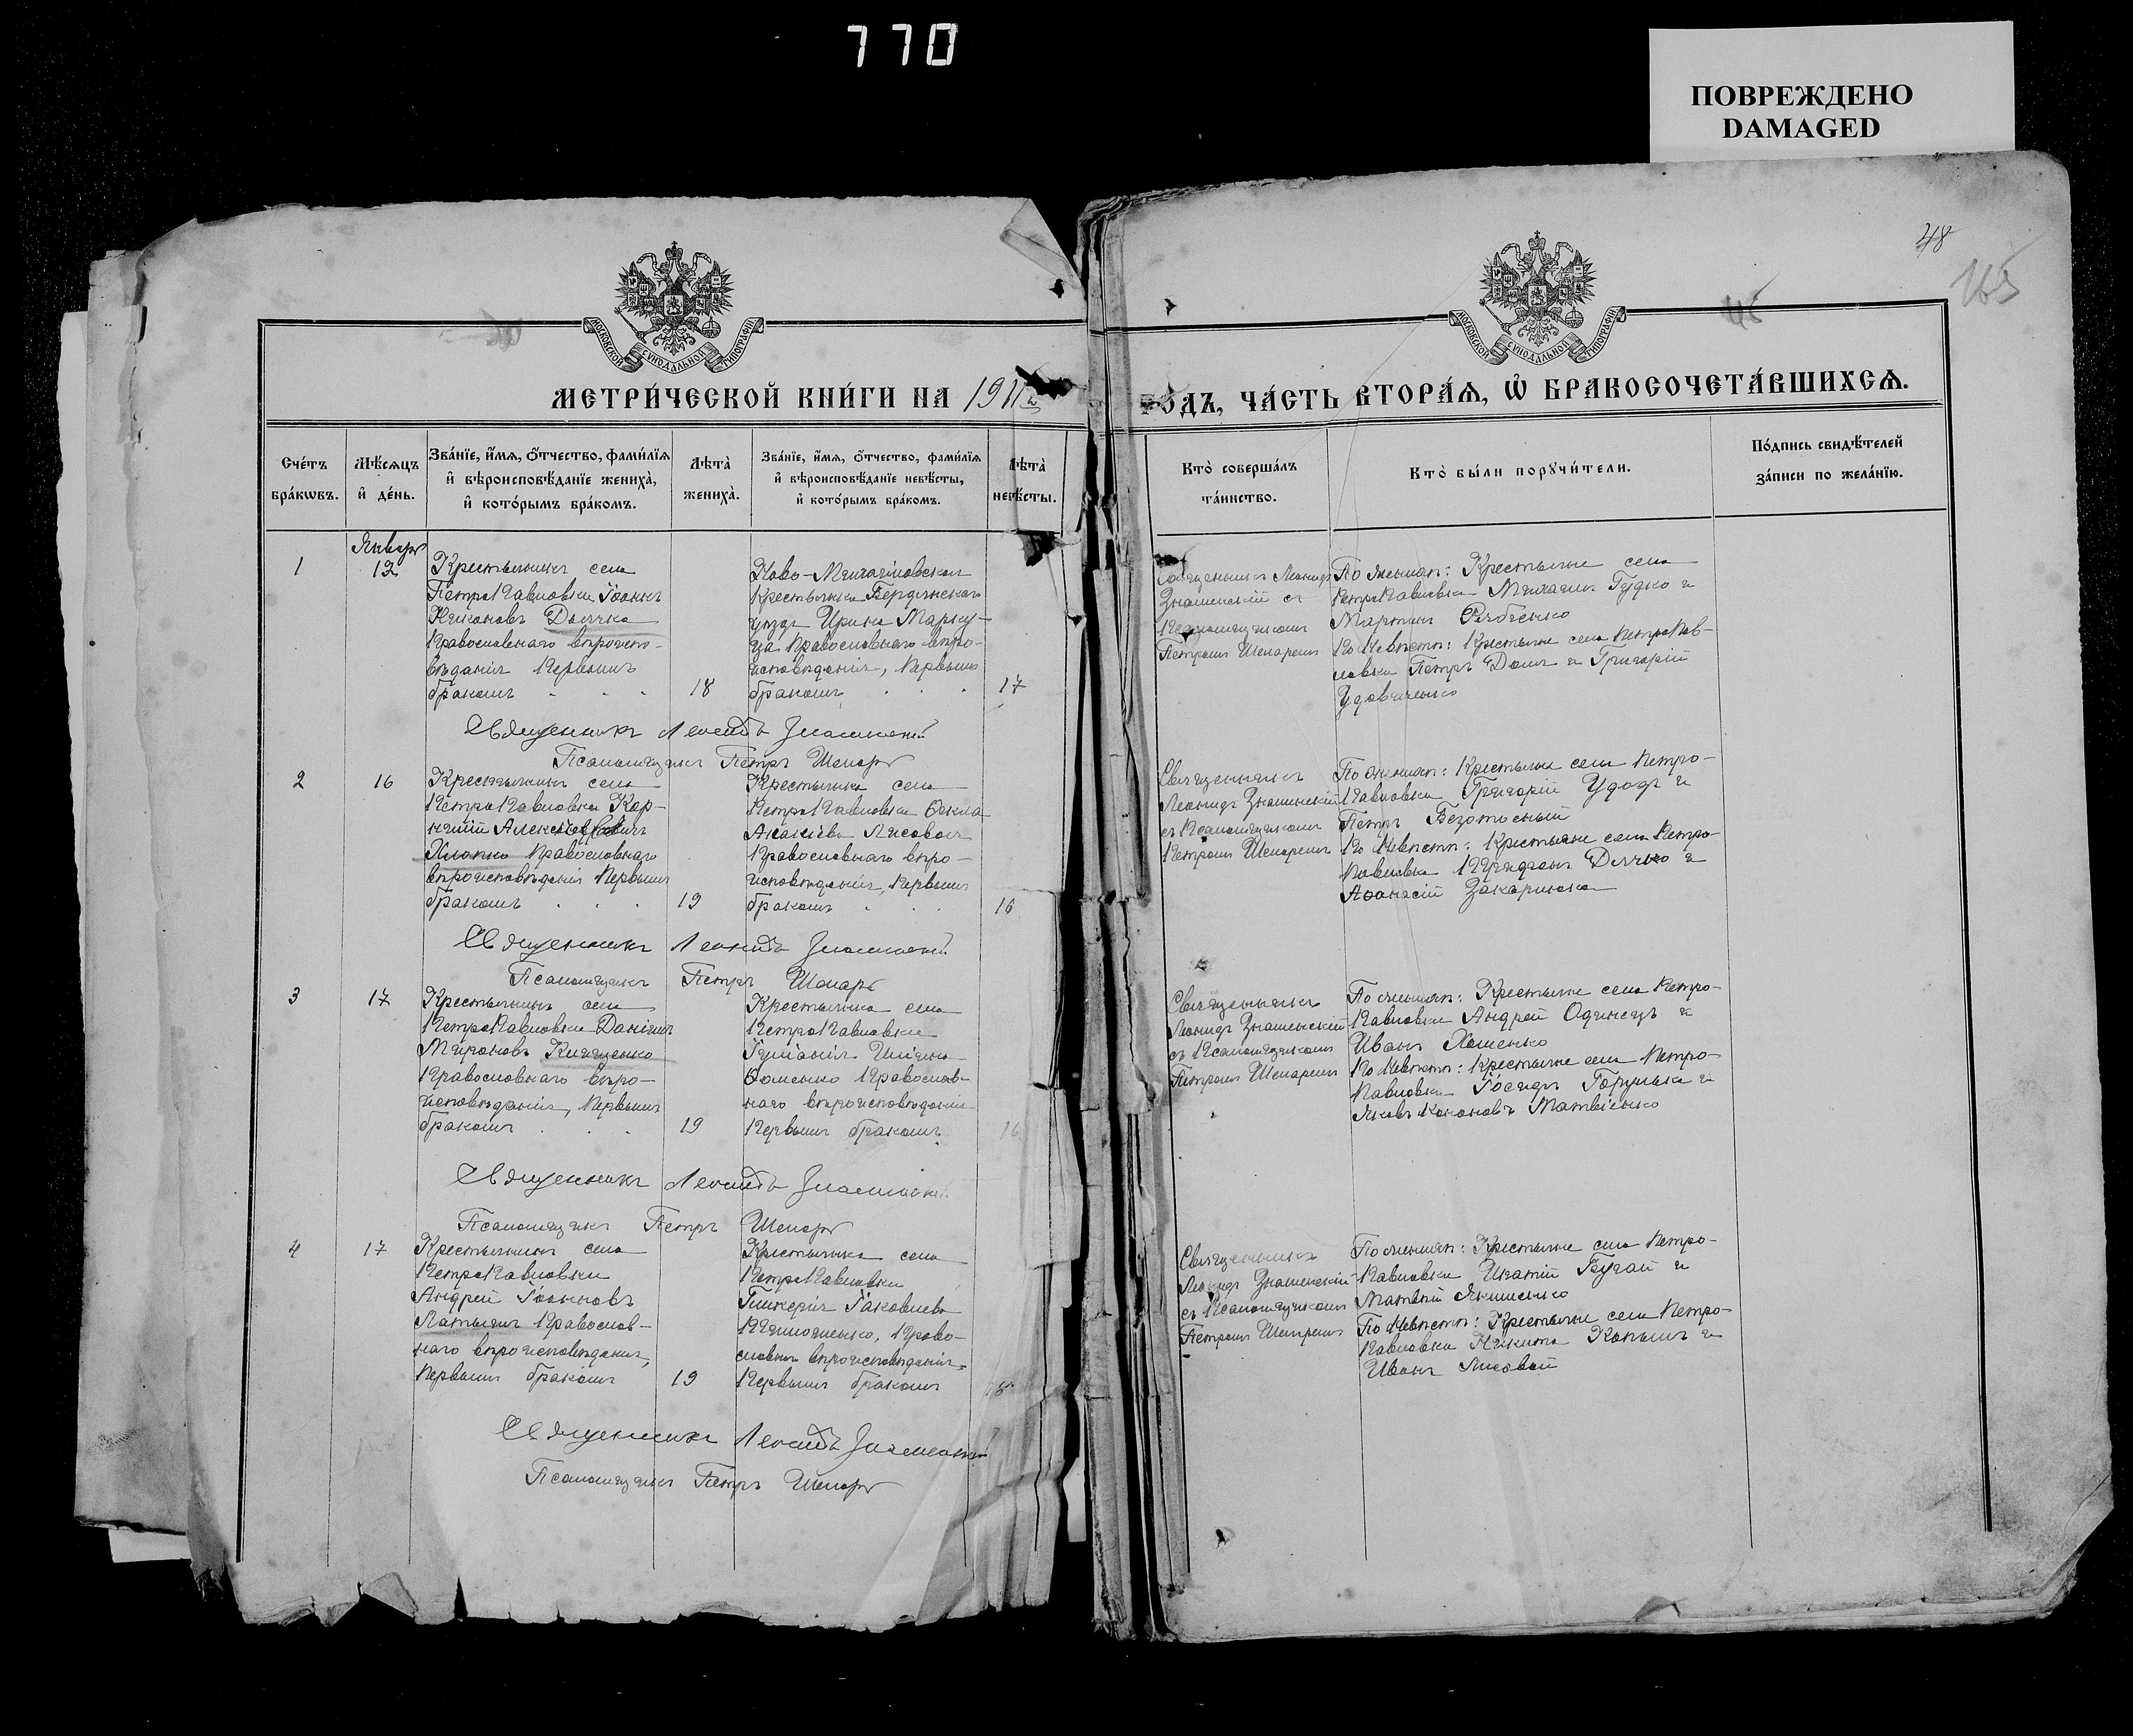 770
ПОВРЕЖДЕНО
DAMAGED
48
165
МОСКОВСКОЙ СУНОДАЛЬНОЙ ТИПОГРАФІИ
МОСКОВСКОЙ СУНОДАЛЬНОЙ ТИПОГРАФІИ
МЕТРИ́ЧЕСКОЙ КНИ́ГИ НА 1911
ГО́ДЪ, ЧА́СТЬ ВТОРА́Ѧ, Ѡ҆ БРАКОСОЧЕТА́ВШИХСѦ.
Сче́тъ бра́кѡвъ.
Мѣ́сѧцъ и҆ де́нь.
Зва́нїе, и҆́мѧ, ѻ҆́тчество, фами́лїѧ
и҆ вѣроисповѣ́данїе жениха̀,
и҆ кото́рымъ бра́комъ.
Лѣта̀ жениха̀.
Зва́нїе, и҆́мѧ, ѻ҆́тчество, фами́лїѧ
и҆ вѣроисповѣ́данїе невѣ́сты,
и҆ кото́рымъ бра́комъ.
Лѣта̀ невѣ́сты.
Кто̀ соверша́лъ
та́инство.
Кто̀ бы́ли порꙋчи́тели.
По́дпись свидѣ́телей
за́писи по жела́нїю.
Январь
1
12
Крестьянинъ села
ПетроПавловки Іоаннъ
Никоновъ Дьячко
Православнаго вѣроиспо-
вѣданія Первымъ
бракомъ
18
Ново-Михайловская
Крестьянка Бердянскаго
уѣзда Ирина Марку-
ца Православнаго вѣро-
исповѣданія, Первымъ
бракомъ
17
Священникъ Леонидъ
Знаменскій съ
Псаломщикомъ
Петромъ Шепаремъ
По женихѣ: Крестьяне села
ПетроПавловки Михаилъ Гудко и
Мартинъ Рябенко
По Невѣстѣ: Крестьяне села ПетроПав-
ловки Петръ Дяшъ и Григорій
Удовиченко
Священникъ Леонидъ Знаменскій
Псаломщикъ Петръ Шепарь
2
16
Крестьянинъ села
ПетроПавловки Кор-
нилій Алексѣевичъ
Хлопко Православнаго
вѣроисповѣданія Первымъ
бракомъ
19
Крестьянка села
ПетроПавловки Ѳекла
Акакіева Лисовая
Православнаго вѣро-
исповѣданія, Первымъ
бракомъ
16
Священникъ
Леонидъ Знаменскій
съ Псаломщикомъ
Петромъ Шепаремъ
По женихѣ: Крестьяне села Петро-
Павловки Григорій Удодъ и
Петръ Безотосный
По Невѣстѣ: Крестьяне села Петро-
Павловки Дьячко и
Аѳанасій Закарлюка
Священникъ Леонидъ Знаменскій
Псаломщикъ Петръ Шепарь
3
17
Крестьянинъ села
ПетроПавловки Даніилъ
Мироновъ Кищенко
Православнаго вѣро-
исповѣданія, Первымъ
бракомъ
19
Крестьянка села
ПетроПавловки
Іуліанія Ильина
Ѳоменко Православ-
наго вѣроисповѣданія
Первымъ бракомъ
16
Священникъ
Леонидъ Знаменскій
съ Псаломщикомъ
Петромъ Шепаремъ
По женихѣ: Крестьяне села Петро-
Павловки Андрей Одинецъ и
Иванъ Хоменко
По Невѣстѣ: Крестьяне села Петро-
Павловки Іосифъ Горулька и
Яковъ Кононовъ Матвіенко
Священникъ Леонидъ Знаменскій
Псаломщикъ Петръ Шепарь
4
17
Крестьянинъ села
ПетроПавловки
Андрей Іоанновъ
Латышъ Православ-
наго вѣроисповѣданія,
Первымъ бракомъ
19
Крестьянка села
ПетроПавловки
Гликерія Іаковлева
Право-
славнаго вѣроисповѣданія
Первымъ бракомъ
Священникъ
Леонидъ Знаменскій
съ Псаломщикомъ
Петромъ Шепаремъ
По женихѣ: Крестьяне села Петро-
Павловки Игнатій Бугай и
Матвій Якименко
По Невѣстѣ: Крестьяне села Петро-
Павловки Никита Копылъ и
Иванъ Лисовый
Священникъ Леонидъ Знаменскій
Псаломщикъ Петръ Шепарь